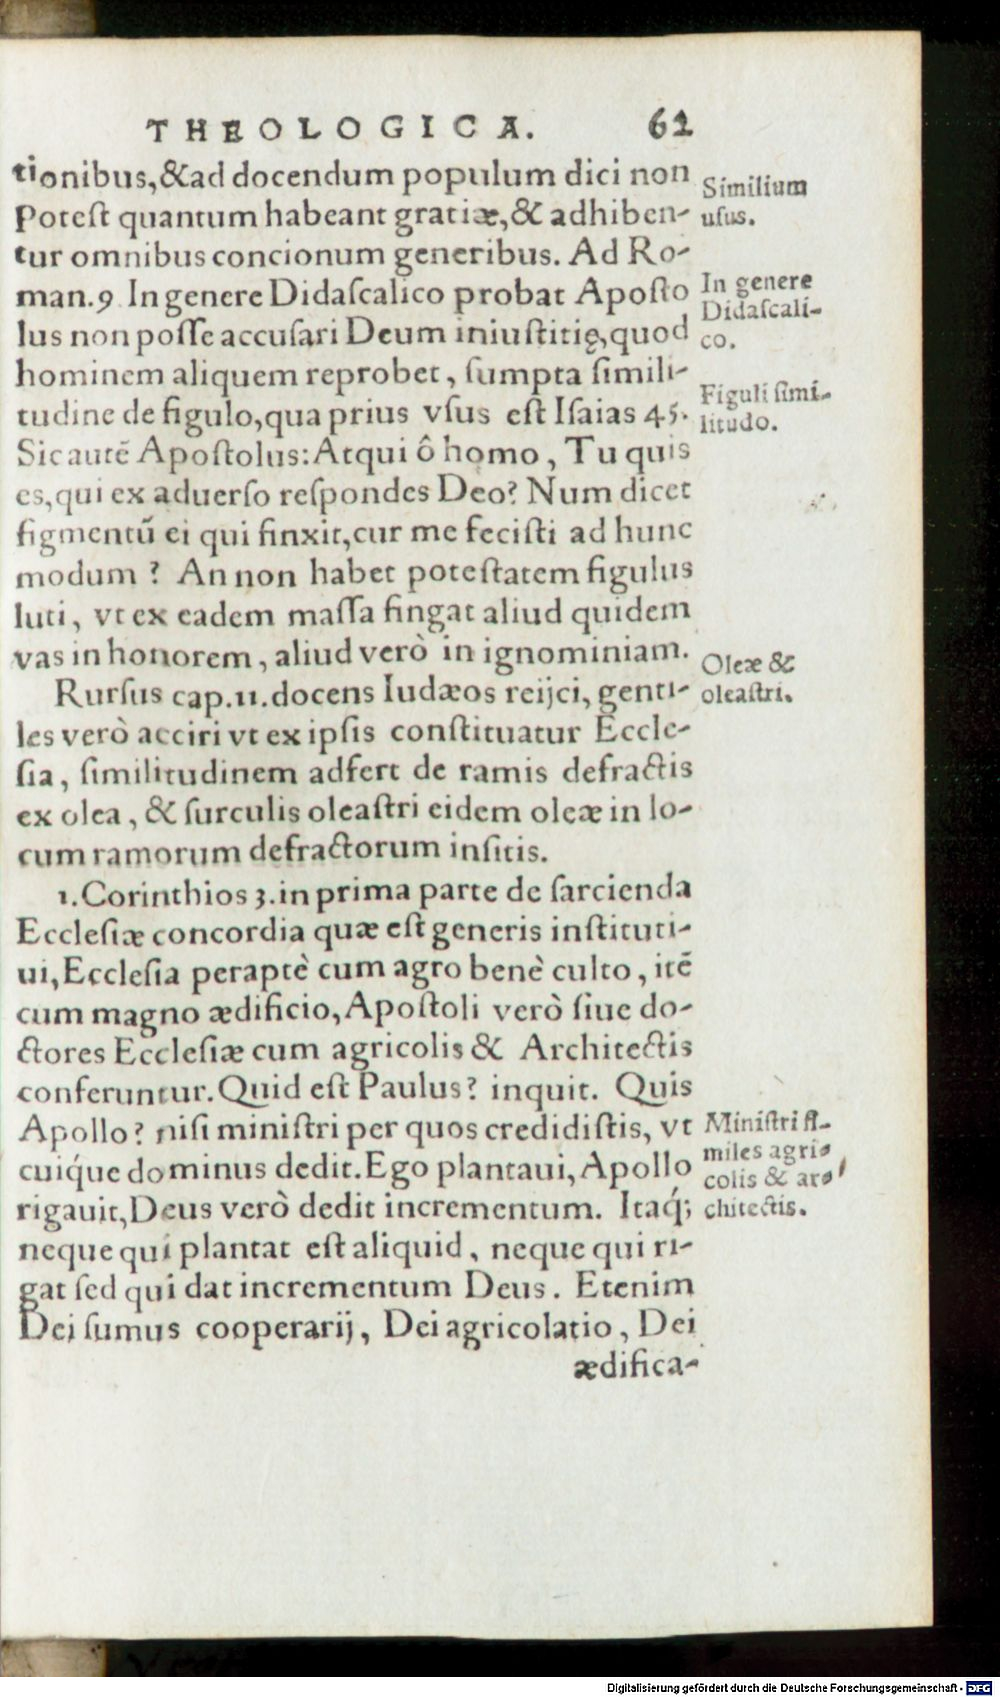 THEOLOGICA. 62
tionibus,&ad docendum populum dici non
Potest quantum habeant gratiæ,& adhiben-
tur omnibus concionum generibus. Ad Ro-
man.9 In genere Didascalico probat Aposto
lus non posse accusari Deum iniustitię,quod
hominem aliquem reprobet, sumpta simili-
tudine de figulo,qua prius vsus est Isaias 45.
Sic autē Apostolus: Atqui ô homo, Tu quis
es,qui ex aduerso respondes Deo? Num dicet
figmentū ei qui finxit,cur me fecisti ad hunc
modum? An non habet potestatem figulus
luti, vt ex eadem massa fingat aliud quidem
vas in honorem, aliud verò in ignominiam.
Rursus cap.11.docens Iudæos reijci, genti-
les verò acciri vt ex ipsis constituatur Eccle-
sia, similitudinem adfert de ramis defractis
ex olea, & surculis oleastri eidem oleæ in lo-
cum ramorum defractorum insitis.
1.Corinthios 3.in prima parte de sarcienda
Ecclesiæ concordia quæ est generis instituti-
ui,Ecclesia peraptè cum agro benè culto, itē
cum magno ædificio,Apostoli verò siue do-
ctores Ecclesiæ cum agricolis & Architectis
conferuntur.Quid est Paulus? inquit. Quis
Apollo? nisi ministri per quos credidistis, vt
cuiq́ue dominus dedit.Ego plantaui,Apollo
rigauit,Deus verò dedit incrementum. Itaq́;
neque qui plantat est aliquid, neque qui ri-
gat sed qui dat incrementum Deus. Etenim
Dei sumus cooperarij, Dei agricolatio, Dei
ædifica-
Similium
usus.
In genere
Didascali-
co.
Figuli simi-
litudo.
Oleæ &
oleastri.
Ministri si-
miles agri-
colis & ar-
chitectis.
Digitalisierung gefördert durch die Deutsche Forschungsgemeinschaft - DFG